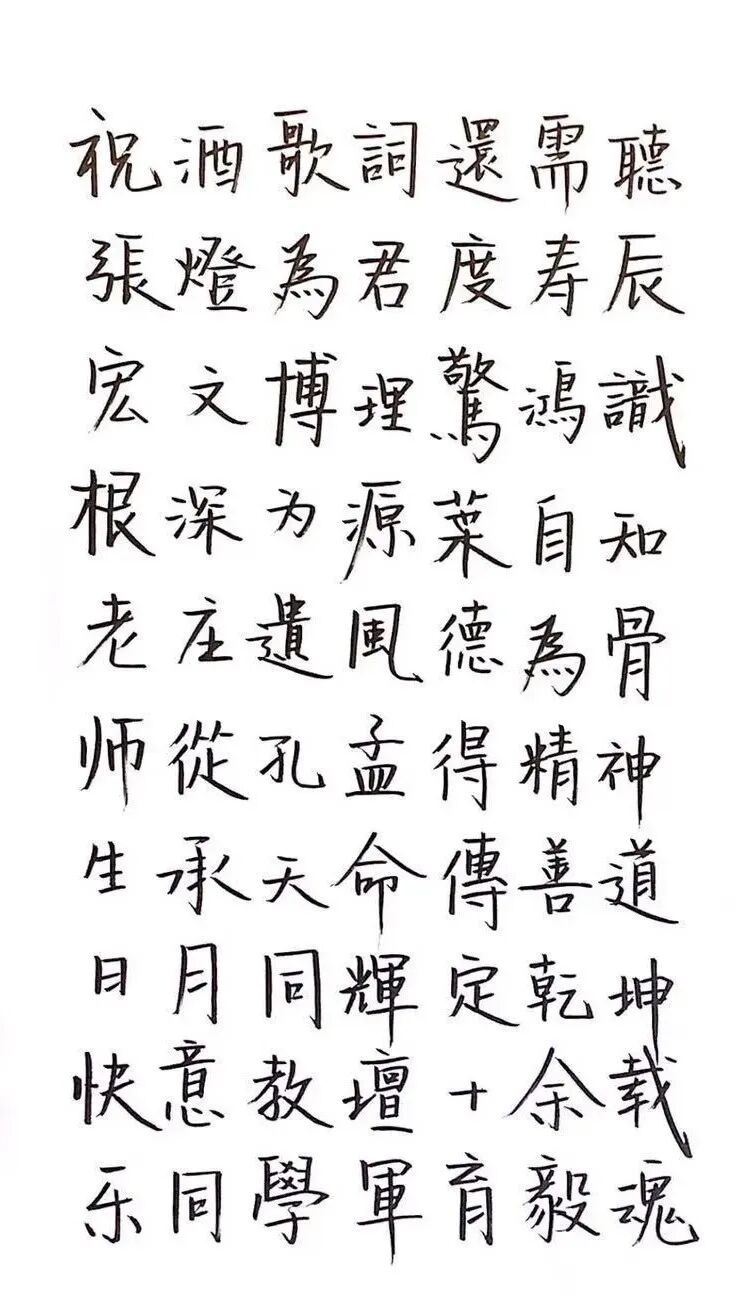 祝酒歌詞還需聽
張燈為君度寿辰
宏文博理驚鴻識
根深为源葉自知
老庄遺風德為骨
师從孔孟得精神
生承天命傳善道
日月同輝定乾坤
快意教壇十余载
乐同學軍育毅魂